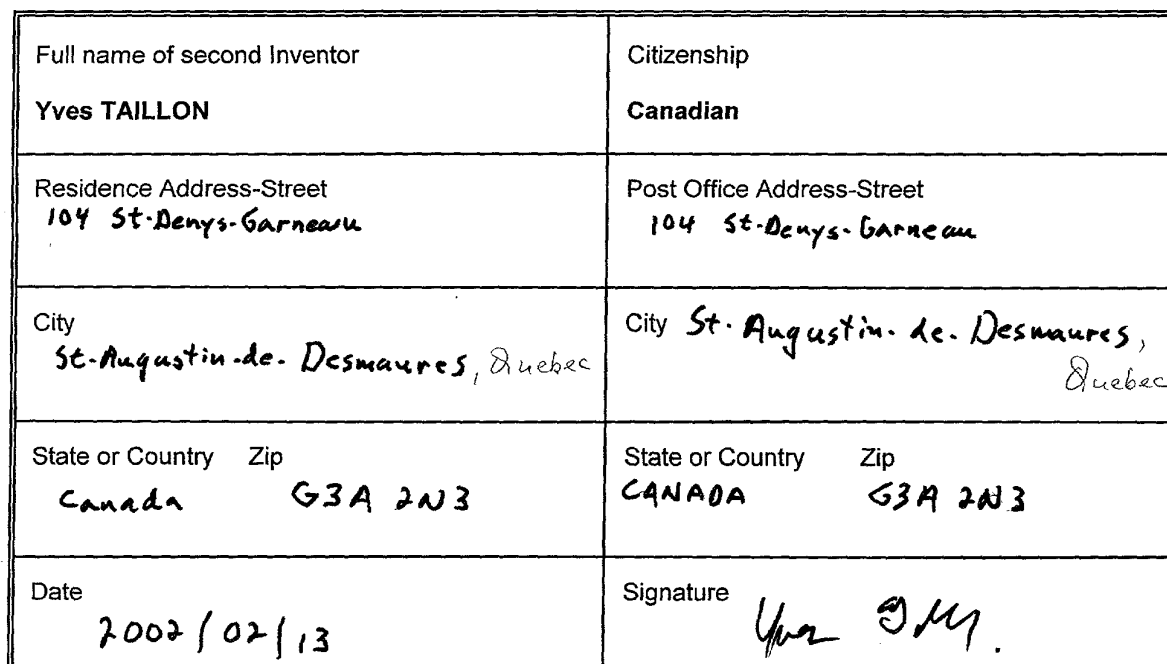 Full name of second Inventor
Yves TAILLON
Citizenship
Canadian
Residence Address-Street
104 St-Denys-Garneau
Post Office Address-Street
104 St-Denys-Garneau
City
St-Augustin-de-Desmaures, Quebec
City St-Augustin-de-Desmaures,
Quebec
State or Country Zip
Canada G3A 2N3
State or Country Zip
CANADA G3A 2N3
Date
2002/02/13
Signature
Yves